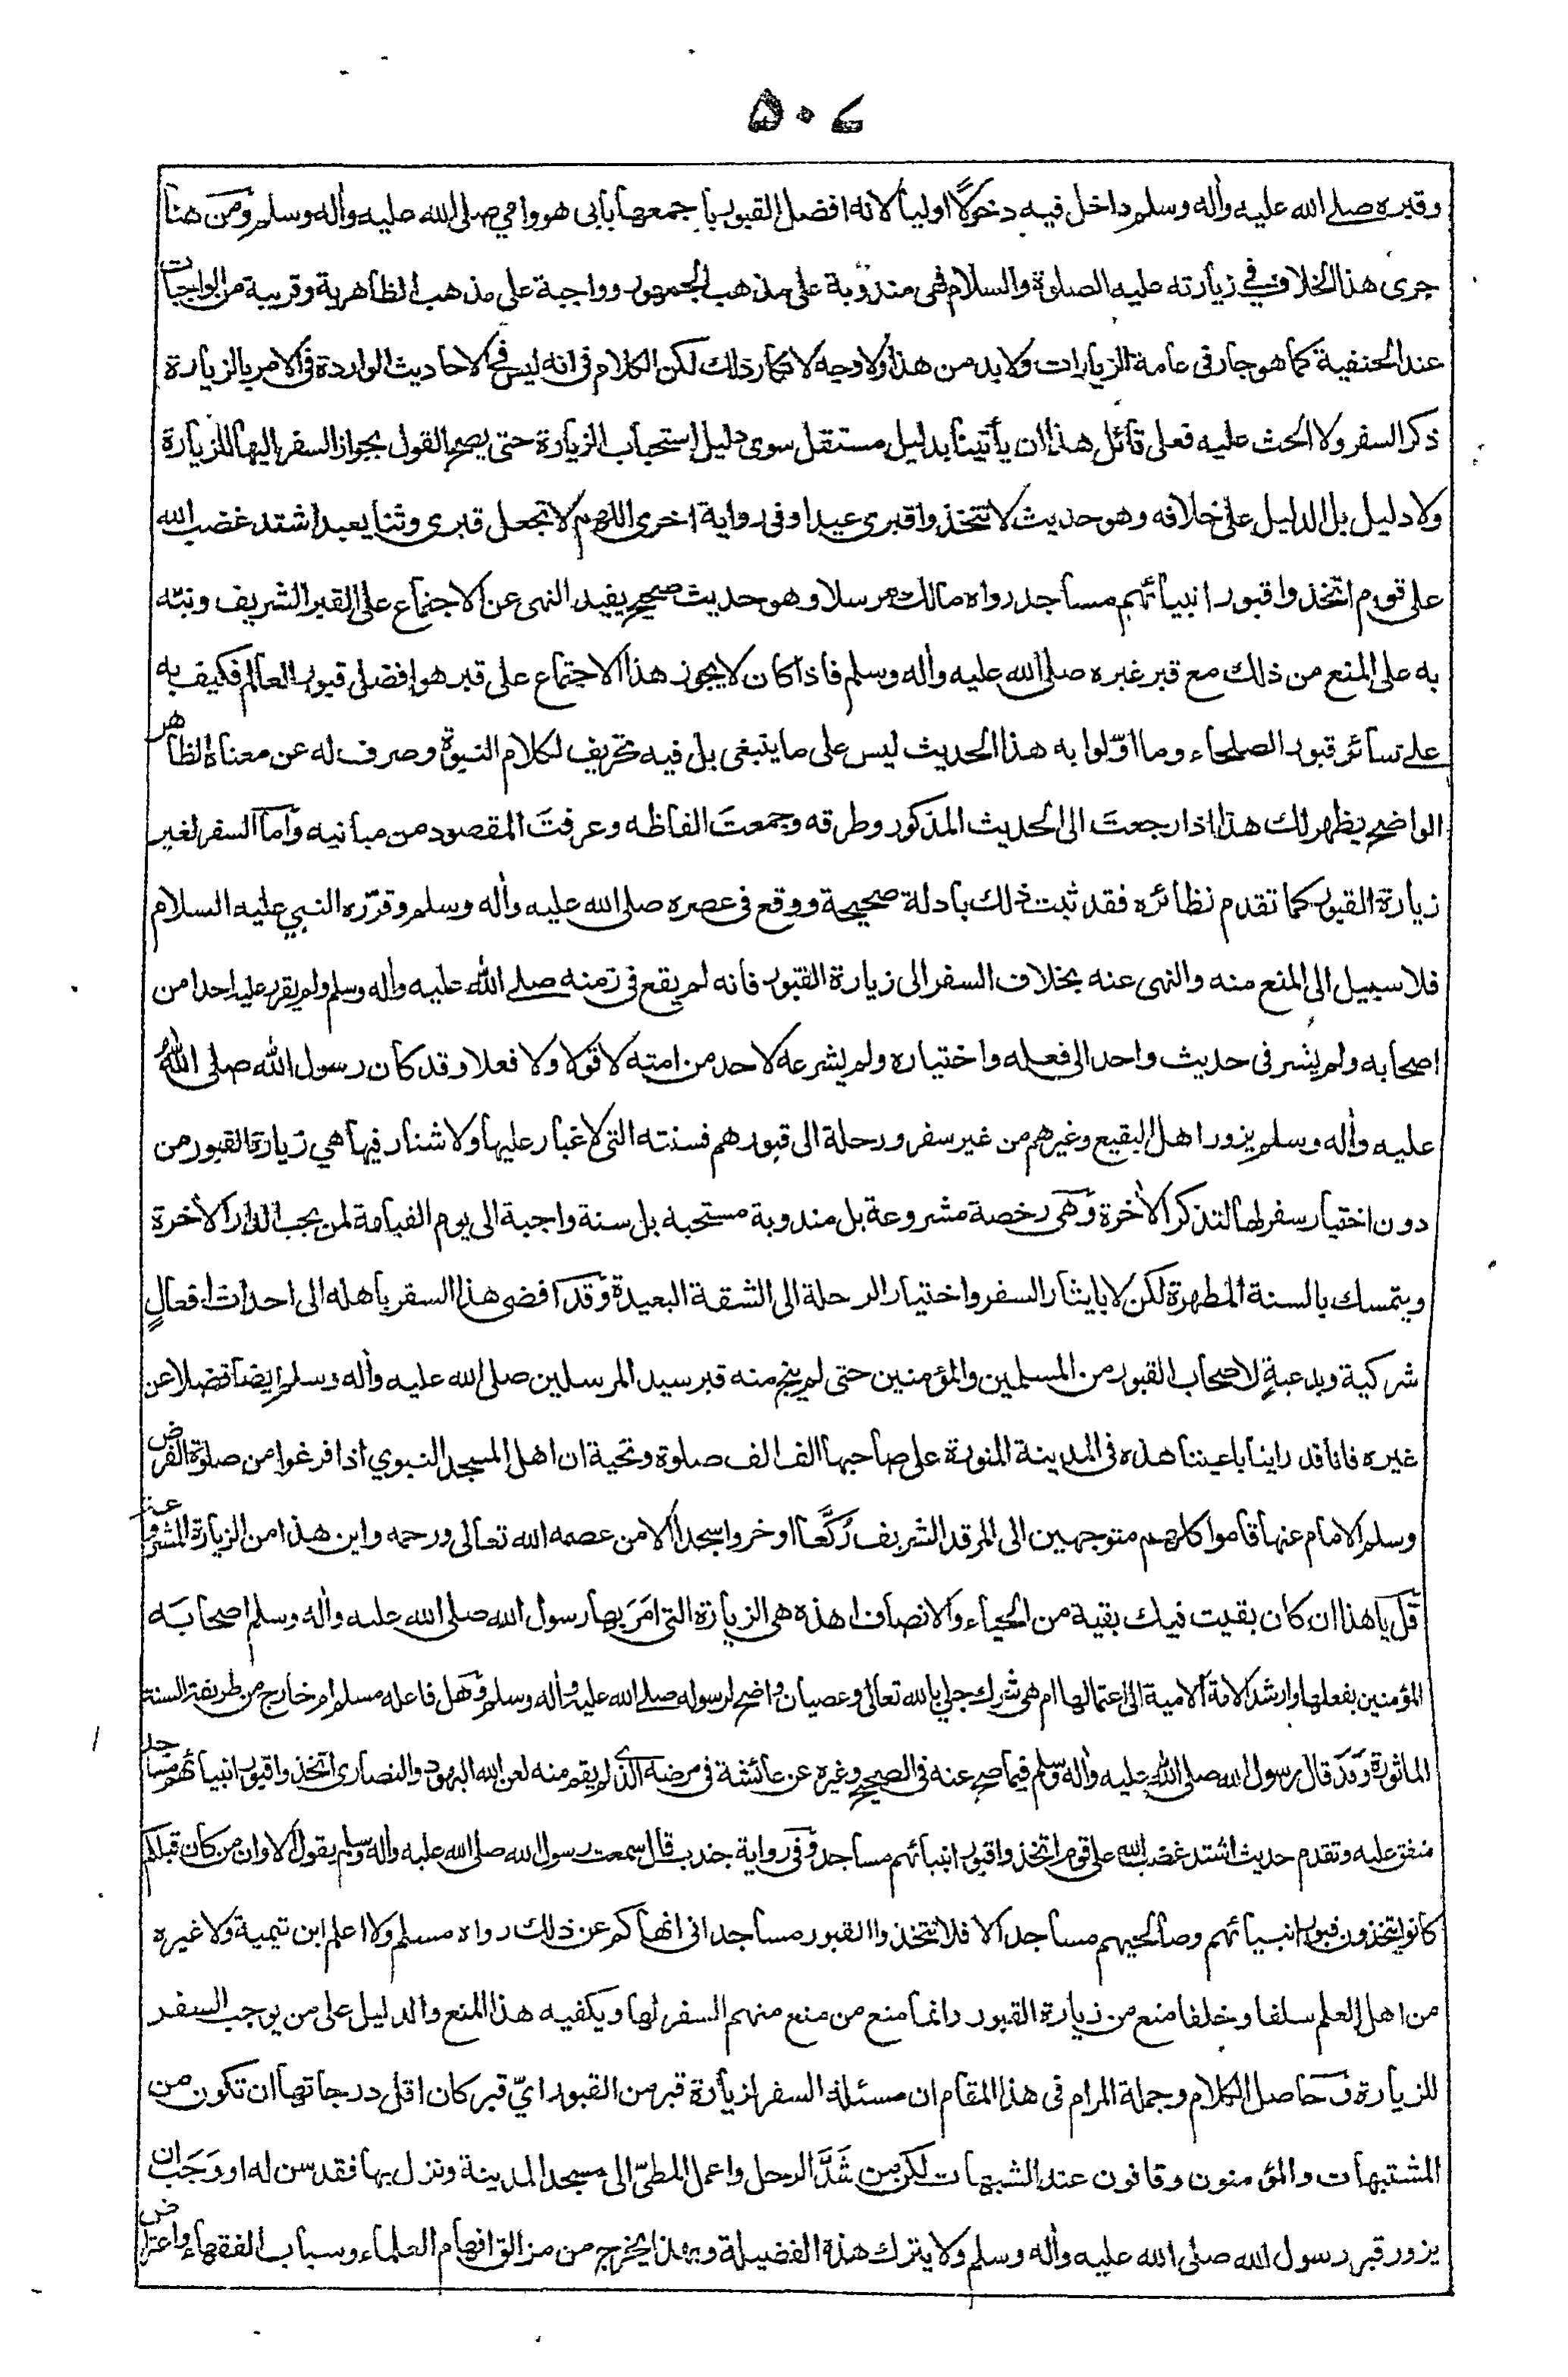 ۵۰۶
وقبره صلى الله عليه وأله وسلم داخل فيه دخولًا اوليا لانه افضل القبور باجمعها بابى هو وامي صلى الله عليه وأله وسلم ومن هنا
جرى هذا الخلاف في زيارته عليه الصلوة والسلام فهى مندوبة على مذهب الجمهور وواجبة على مذهب الظاهرية وقريبة من الواجبات
عند الحنفية كما هو جار فى عامة الزيارات ولا بد من هذا ولا وجه لانكار ذلك لكن الكلام فى انه ليس فى الاحاديث الواردة فى الامر بالزيارة
ذكر السفر ولا الحث عليه فعلى قائل هذا ان يأتينا بدليل مستقل سوى دليل استحباب الزيارة حتى يصح القول بجواز السفر اليها للزيارة
ولا دليل بل الدليل على خلافه وهو حديث لا تتخذوا قبرى عيدا وفى رواية اخرى اللهم لا تجعل قبرى وثنا يعبد اشتد غضب الله
على قوم اتخذوا قبور انبيائهم مساجد رواه مالك مرسلا وهو حديث صحيح يفيد النهى عن الاجتماع على القبر الشريف ونبّه
به على المنع من ذلك مع قبر غيره صلى الله عليه وأله وسلم فاذا كان لا يجوز هذا الاجتماع على قبر هو افضل قبور العالم فكيف به
على سائر قبور الصلحاء وما اوّلوا به هذا الحديث ليس على ما ينبغى بل فيه تحريف لكلام النبوة وصرف له عن معناه الظاهر
الواضح يظهر لك هذا اذا رجعتَ الى الحديث المذكور وطرقه وجمعتَ الفاظه وعرفتَ المقصود من مبانيه وأما السفر لغير
زيارة القبور كما تقدم نظائره فقد ثبت ذلك بادلة صحيحة ووقع فى عصره صلى الله عليه وأله وسلم وقرّره النبي عليه السلام
فلا سبيل الى المنع منه والنهى عنه بخلاف السفر الى زيارة القبور فانه لم يقع فى زمنه صلى الله عليه وأله وسلم ولم يقرر عليه احدا من
اصحابه ولم يشر فى حديث واحد الى فعله واختياره ولم يشرعه لاحد من امته لا قولا ولا فعلا وقد كان رسول الله صلى الله
عليه وأله وسلم يزور اهل البقيع وغيرهم من غير سفر ورحلة الى قبورهم فسنته التى لا غبار عليها ولا شنار فيها هي زيارة القبور من
دون اختيار سفر لها لتذكر الأخرة وهى رخصة مشروعة بل مندوبة مستحبة بل سنة واجبة الى يوم القيامة لمن يحب الدار الأخرة
ويتمسك بالسنة المطهرة لكن لا بايثار السفر واختيار الرحلة الى الشقة البعيدة وقد افضى هذا السفر باهله الى احداث افعالٍ
شركية وبدعيةٍ لاصحاب القبور من المسلمين والمؤمنين حتى لم ينج منه قبر سيد المرسلين صلى الله عليه وأله وسلم ايضا فضلا عن
غيره فانا قد راينا باعيننا هذه فى المدينة المنورة على صاحبها الف الف صلوة وتحية ان اهل المسجد النبوي اذا فرغوا من صلوة الفرض
وسلم الامام عنها قاموا كلهم متوجهين الى المرقد الشريف رُكَّعا او خروا سجدا الا من عصمه الله تعالى ورحمه واين هذا من الزيارة المشروعة
قل يا هذا ان كان بقيت فيك بقية من الحياء والانصاف اهذه هى الزيارة التى امَرَ بها رسول الله صلى الله عليه وأله وسلم اصحابَه
المؤمنين بفعلها وارشد الامة الامية الى اعتمالها ام هى شرك جلي بالله تعالى وعصيان واضح لرسوله صلى الله عليه وأله وسلم وهل فاعله مسلم ام خارج من طريقة السنة
الماثورة وقد قال رسول الله صلى الله عليه وأله وسلم فيما صح عنه فى الصحيح وغيره عن عائشة فى مرضه الذى لم يقم منه لعن الله اليهود والنصارى اتخذوا قبور انبيائهم مساجد
متفق عليه وتقدم حديث اشتد غضب الله على قوم اتخذوا قبور انبيائهم مساجد وفى رواية جندب قال سمعت رسول الله صلى الله عليه وأله وسلم يقول الا وان من كان قبلكم
كانوا يتخذون قبور انبيائهم وصالحيهم مساجد الا فلا تتخذوا القبور مساجد انى انهاكم عن ذلك رواه مسلم ولا اعلم ابن تيمية ولا غيره
من اهل العلم سلفا وخلفا منع من زيارة القبور وانما منع من منع منهم السفر لها ويكفيه هذا المنع والدليل على من يوجب السفر
للزيارة وحاصل الكلام وجملة المرام فى هذا المقام ان مسئلة السفر لزيارة قبر من القبور ايّ قبر كان اقل درجاتها ان تكون من
المشتبهات والمؤمنون وقافون عند الشبهات لكن من شَدَّ الرحل واعمل المطيّ الى مسجد المدينة ونزل بها فقد سن له او وَجَب ان
يزور قبر رسول الله صلى الله عليه وأله وسلم ولا يترك هذه الفضيلة وبهذا يخرج من مزالق افهام العلماء وسباب الفقهاء واعتراض